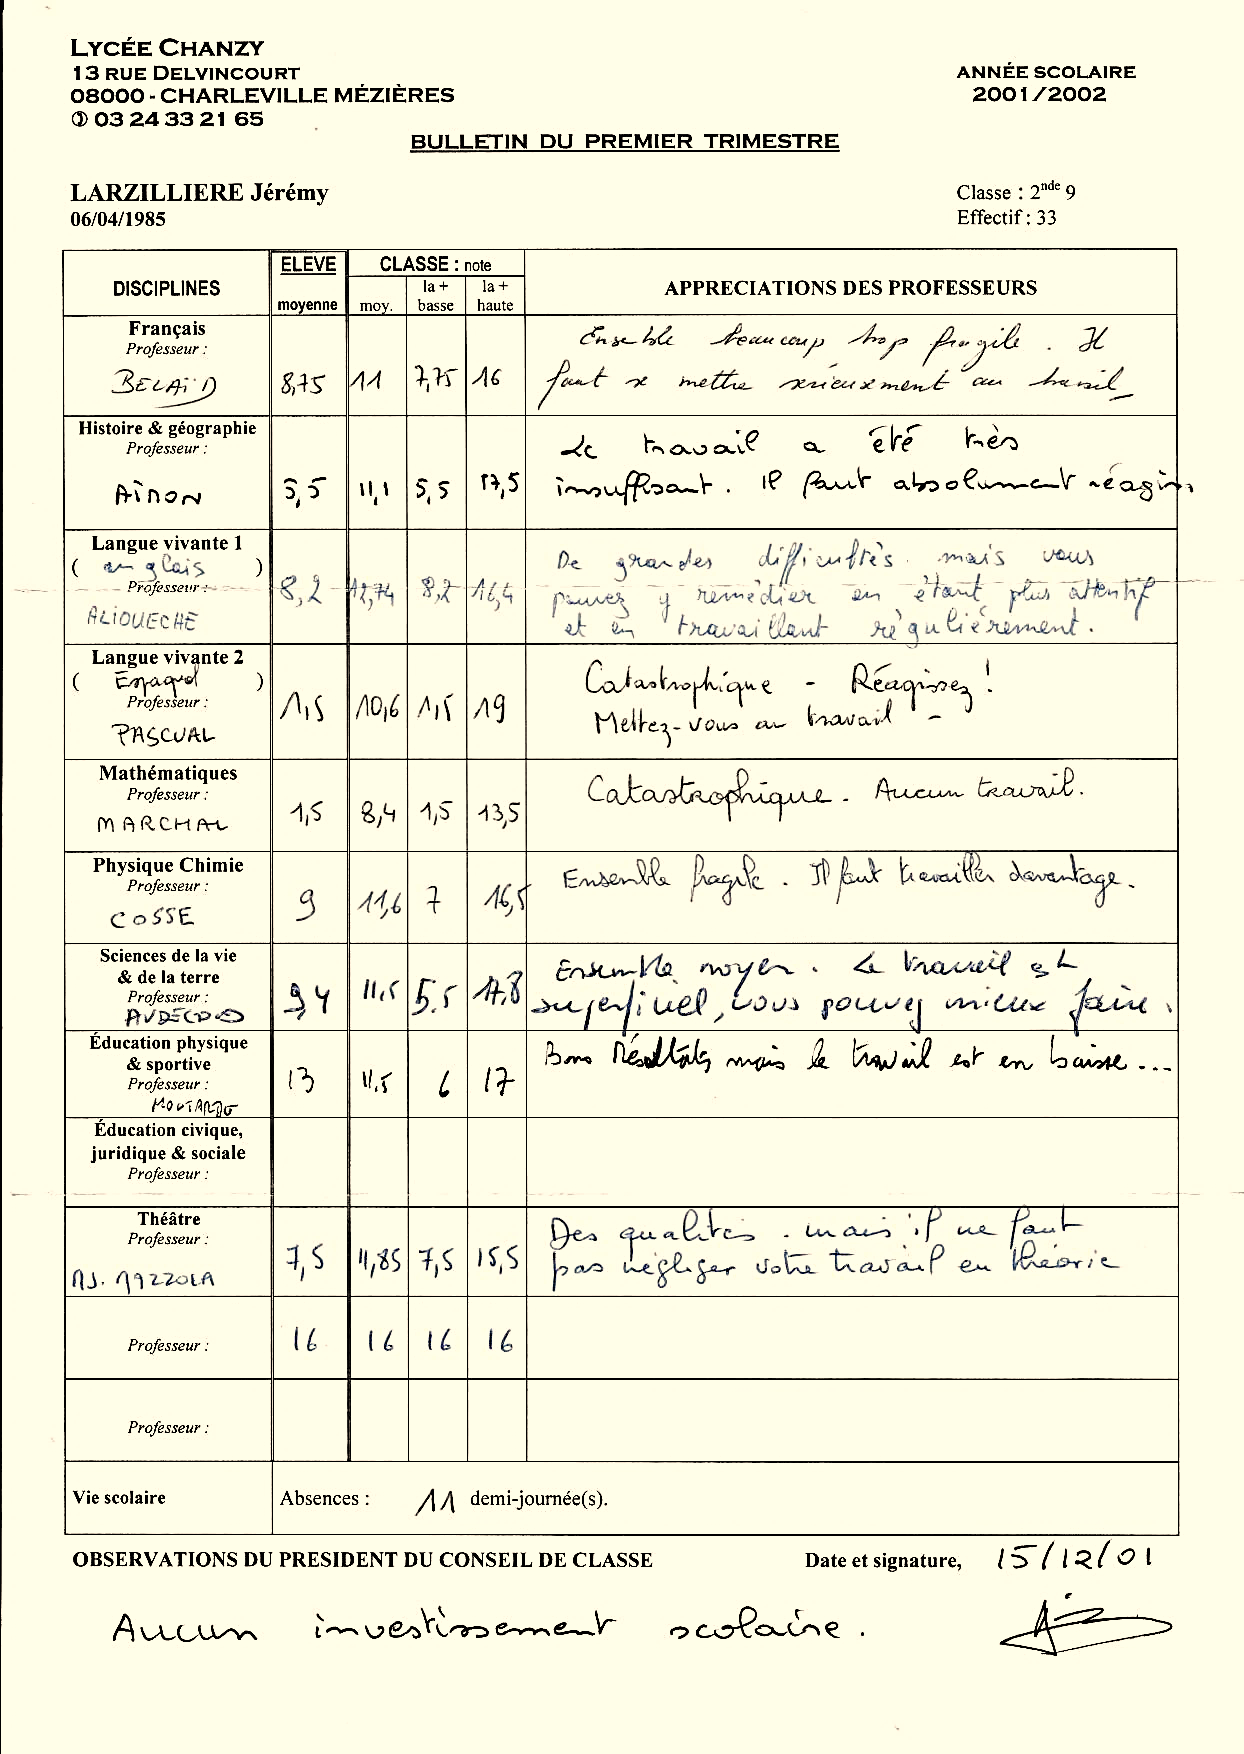 LYCÉE CHANZY
13 RUE DELVINCOURT
08000 - CHARLEVILLE MÉZIÈRES
✆ 03 24 33 21 65
ANNÉE SCOLAIRE
2001/2002
BULLETIN DU PREMIER TRIMESTRE
LARZILLIERE Jérémy
06/04/1985
Classe : 2nde 9
Effectif : 33
DISCIPLINES
ELEVE
moyenne
CLASSE : note
moy.
la + basse
la + haute
APPRECIATIONS DES PROFESSEURS
Français
Professeur :
BELAÏD
8,75 11 7,75 16
Ensemble beaucoup trop fragile. Il
faut se mettre sérieusement au travail
Histoire & géographie
Professeur :
AÏNON
5,5 11,1 5,5 17,5
Le travail a été très
insuffisant. Il faut absolument réagir.
Langue vivante 1
( anglais )
Professeur :
ALIOUECHE
8,2 12,74 8,2 16,4
De grandes difficultés mais vous
pouvez y remédier en étant plus attentif
et en travaillant régulièrement.
Langue vivante 2
( Espagnol )
Professeur :
PASCUAL
1,5 10,6 1,5 19
Catastrophique - Réagissez !
Mettez-vous au travail -
Mathématiques
Professeur :
MARCHAL
1,5 8,4 1,5 13,5
Catastrophique. Aucun travail.
Physique Chimie
Professeur :
COSSE
9 11,6 7 16,5
Ensemble fragile. Il faut travailler davantage.
Sciences de la vie
& de la terre
Professeur :
9,4 11,5 5,5 17,8
Ensemble moyen. Le travail est
superficiel, vous pouvez mieux faire.
Éducation physique
& sportive
Professeur :
13 11,5 6 17
Bons résultats mais le travail est en baisse...
Éducation civique,
juridique & sociale
Professeur :
Théâtre
Professeur :
MJ. MAZZOLA
7,5 11,85 7,5 15,5
Des qualités. mais il ne faut
pas négliger votre travail en théorie
Professeur :
16 16 16 16
Professeur :
Vie scolaire
Absences : 11 demi-journée(s).
OBSERVATIONS DU PRESIDENT DU CONSEIL DE CLASSE
Date et signature, 15/12/01
Aucun investissement scolaire.